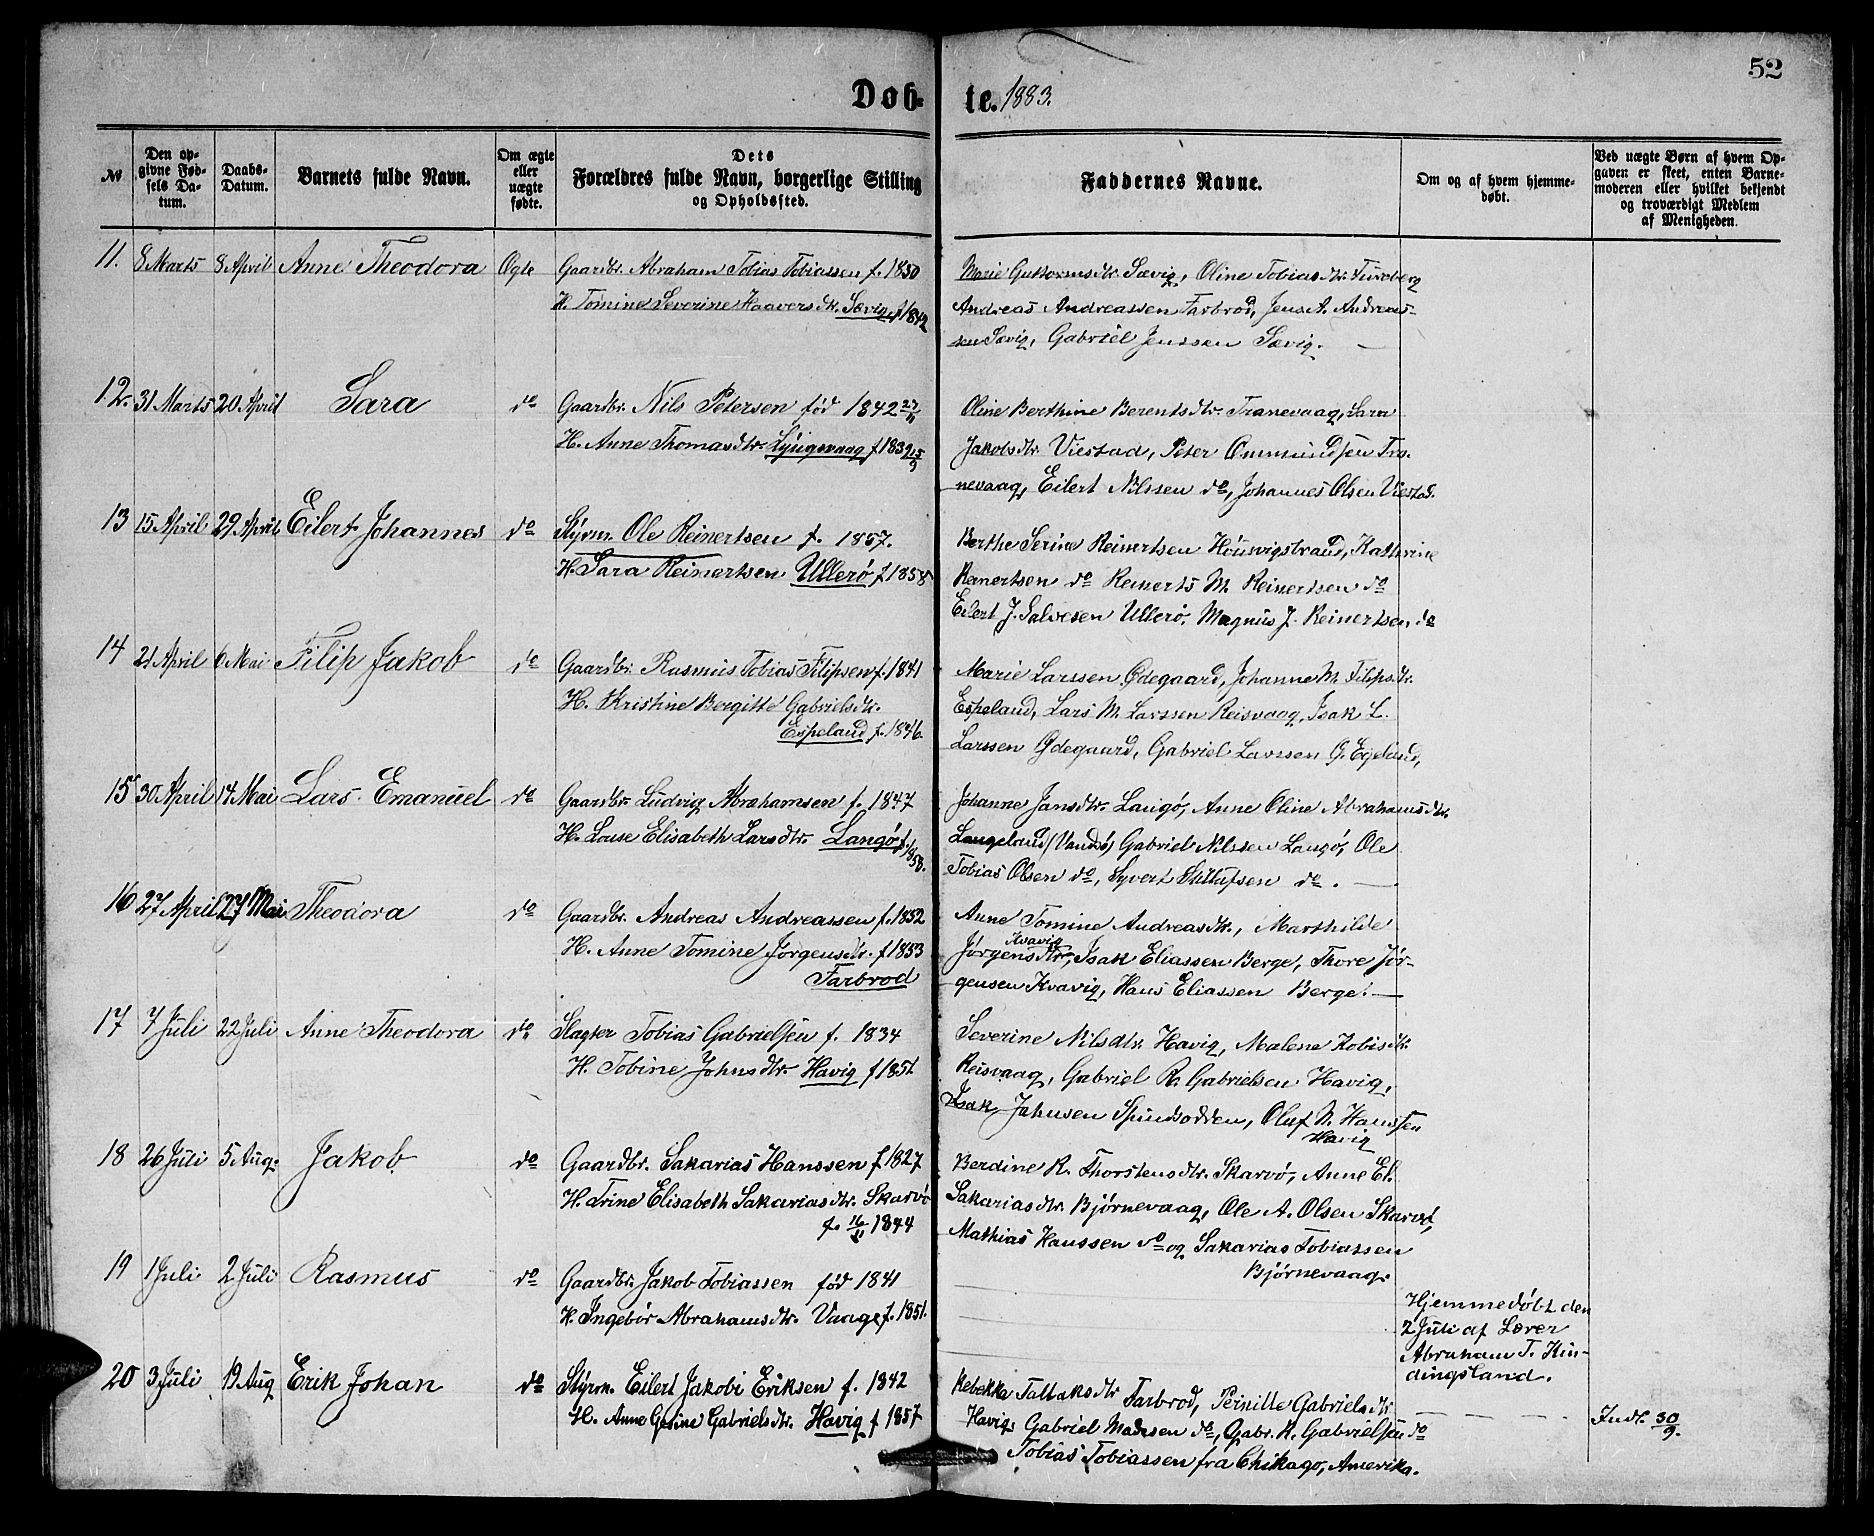 52
Døb- te. 1883.
№
Den op-
givne Fød-
sels Da-
tum.
Daabs-
Datum.
Barnets fulde Navn.
Om ægte
eller
uægte
fødte.
Dets
Forældres fulde Navn, borgerlige Stilling
og Opholdssted.
Faddernes Navne.
Om og af hvem hjemme-
døbt.
Ved uægte Børn af hvem Op-
gaven er skeet, enten Barne-
moderen eller hvilket bekjendt
og troværdigt Medlem
af Menigheden.
11. 8 Marts 8 April Anne Theodora Ægte Gaardbr. Abraham Tobias Tobiassen f. 1850
H. Tomine Severine Haaversdtr. Sævig f 1842
Marie Guttormsdtr. Sævig, Oline Tobiasdtr.
Andreas Andreassen Farbrod, Jens A. Andreas-
sen Sævig, Gabriel Jenssen Sævig.
12. 31 Marts 20 April Sara do Gaardbr. Nils Petersen fød 1842
H. Anne Thomasdtr. Lyngsvaag f 1839
Oline Berthine Berentsdtr. Tranevaag, Sara
Jakobsdtr. Viestad, Peter Ommundsen Tra-
nevaag, Eilert Nilssen do, Johannes Olsen Viestad.
13 15 April 29 April Eilert Johannes do Styrm. Ole Reinertsen f. 1857.
H. Sara Reinertsen Ullerø f 1858
Berthe Serine Reinertsen Houvigstrand, Kathrine
Reinertsen do Reinerts M. Reinertsen do
Eilert J. Salvesen Ullerø, Magnus J. Reinertsen do
14 21 April 6 Mai Filip Jakob do Gaardbr. Rasmus Tobias Filipsen f. 1841
H. Kristine Bergitte Gabrielsdtr.
Espeland f. 1846.
Marie Larssen Ødegaard, Johanne M. Filipsdtr.
Espeland, Lars M. Larssen Reisvaag, Isak L.
Larssen Ødegaard, Gabriel Larssen G. Egeland,
15 30 April 14 Mai Lars Emanuel do Gaardbr. Ludvig Abrahamsen f. 1847
H. Louise Elisabeth Larsdtr. Langø f. 1858.
Johanne Jansdtr. Langø, Anne Oline Abrahamsdtr.
Langeland (Vandsø) Gabriel Nilssen Langø, Ole
Tobias Olsen do, Syvert Olsen do.
16 27 April 27 Mai Theodora do Gaardbr. Andreas Andreassen f. 1852
H. Anne Tomine Jørgensdtr. f 1853
Farbrod
Anne Tomine Andreasdtr., Marthilde
Kvavig
Jørgensdtr, Isak Eliassen Berge, Thore Jør-
gensen Kvavig, Hans Eliassen Berge.
17 7 Juli 22 Juli Anne Theodora do Slagter Tobias Gabrielsen f. 1834
H. Tobine Johnsdtr. Havig f 1851
Severine Nilsdtr. Havig, Malene Tobisdtr.
Reisvaag, Gabriel R. Gabrielsen Havig,
Isak Jahnsen Spindsodden, Oluf N. Hanssen
Havig
18 26 Juli 5 Aug. Jakob do Gaardbr. Sakarias Hanssen f 1827
H. Trine Elisabeth Sakariasdtr. Skarvø
f. 16/11 1844
Berdine R. Thorstensdtr. Skarvø, Anne El.
Sakariasdtr. Bjørnevaag, Ole A. Olsen Skarvø,
Mathias Hanssen do og Sakarias Tobiassen
Bjørnevaag.
19 1 Juli 2 Juli Rasmus do Gaardbr. Jakob Tobiassen fød 1841
H. Ingebør Abrahamsdtr. Vaage f. 1851.
Hjemmedøbt den
2 Juli af Lærer
Abraham T. Hin-
dingsland.
20 3 Juli 19 Aug Erik Johan do Styrm. Eilert Jakobi Eriksen f. 1842
H. Anne Gesine Gabrielsdtr. Havig f 1857
Rebekka Taltaksdtr Farbrod, Pernille Gabrielsdtr
Havig, Gabriel Madssen do, Gabr. R. Gabrielsen do
Tobias Tobiassen fra Chikago, Amerika.
Indt. 30/9.